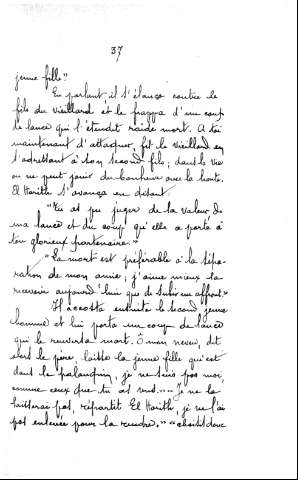 37
jeune fille."
En parlant, il s'élança contre le
fils du vieillard et le frappa d'un coup
de lance qui l'étendit raide mort. A toi
maintenant d'attaquer, fit le vieillard en
s'adressant à son second fils; dans la vie
on ne peut jouir du bonheur avec la honte.
El Harith s'avança en disant
"Tu as pu juger de la valeur de
ma lance et du coup qu'elle a porté à
ton glorieux partenaire."
"La mort est préférable à la sépa-
ration de mon amie; j'aime mieux la
recevoir aujourd'hui que de subir un affront."
Il accosta ensuite le second jeune
homme et lui porta un coup de lance
qui le renversa mort. Ô mon neveu, dit
alors le père, laisse la jeune fille qui est
dans le palanquin, je ne suis pas moi,
comme ceux que tu as vus.... Je ne la
laisserai pas, répartit El Harith, je ne l'ai
pas enlevée pour la rendre."